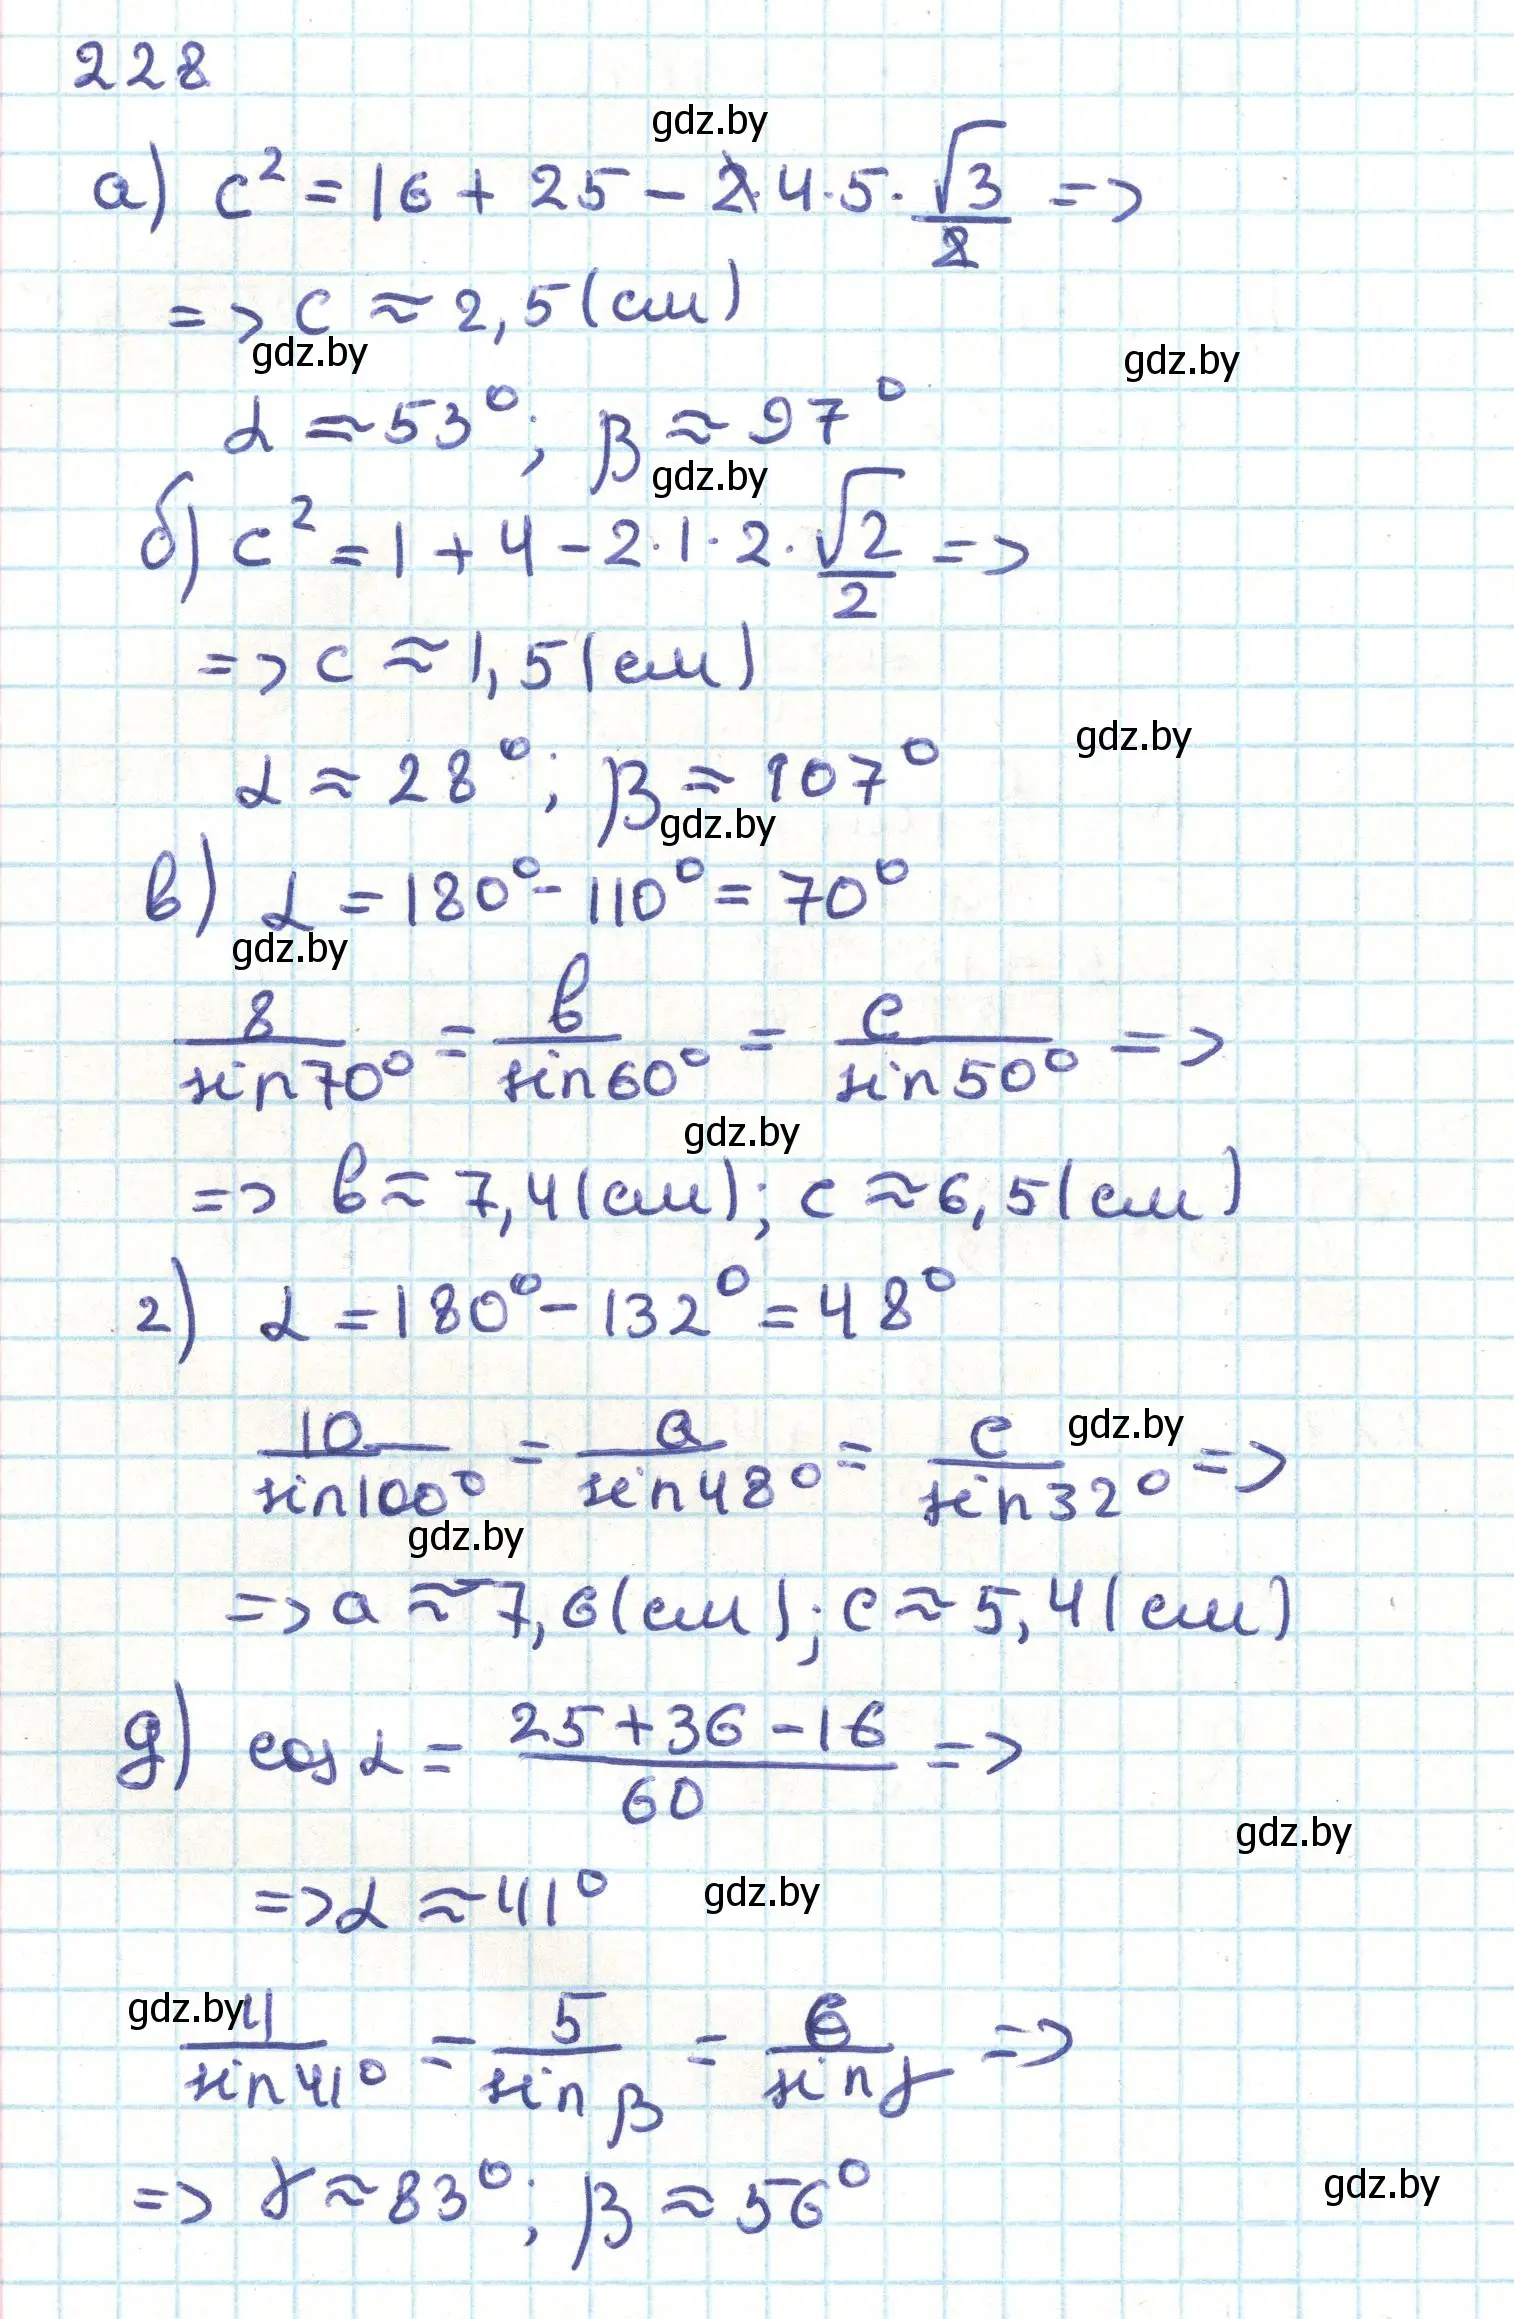 228
gdz.by
а) c² = 16 + 25 − 2·4·5·√3/2 =>
=> c ≈ 2,5 (см)
gdz.by gdz.by
α ≈ 53°; β ≈ 97°
gdz.by
б) c² = 1 + 4 − 2·1·2·√2/2 =>
=> c ≈ 1,5 (см)
gdz.by
α ≈ 28°; β ≈ 107°
gdz.by
в) α = 180° − 110° = 70°
gdz.by
8/sin70° = b/sin60° = c/sin50° =>
gdz.by
=> b ≈ 7,4 (см); c ≈ 6,5 (см)
г) α = 180° − 132° = 48°
gdz.by
10/sin100° = a/sin48° = c/sin32° =>
gdz.by
=> a ≈ 7,6 (см); c ≈ 5,4 (см)
д) cos α = (25 + 36 − 16)/60 =>
gdz.by
=> α ≈ 41°
gdz.by
gdz.by
4/sin41° = 5/sinβ = 6/sinγ =>
=> γ ≈ 83°; β ≈ 56°
gdz.by